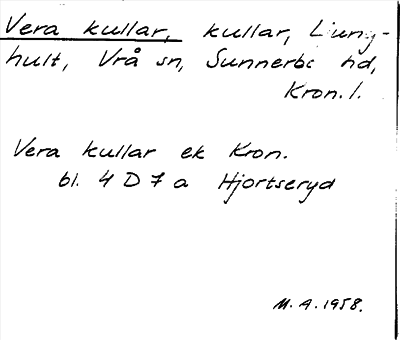 Vera kullar, kullar, Ljung-
hult, Vrå sn, Sunnerbo hd,
Kron. l.
Vera kullar ek Kron.
bl. 4 D 7 a Hjortseryd
M. A. 1958.